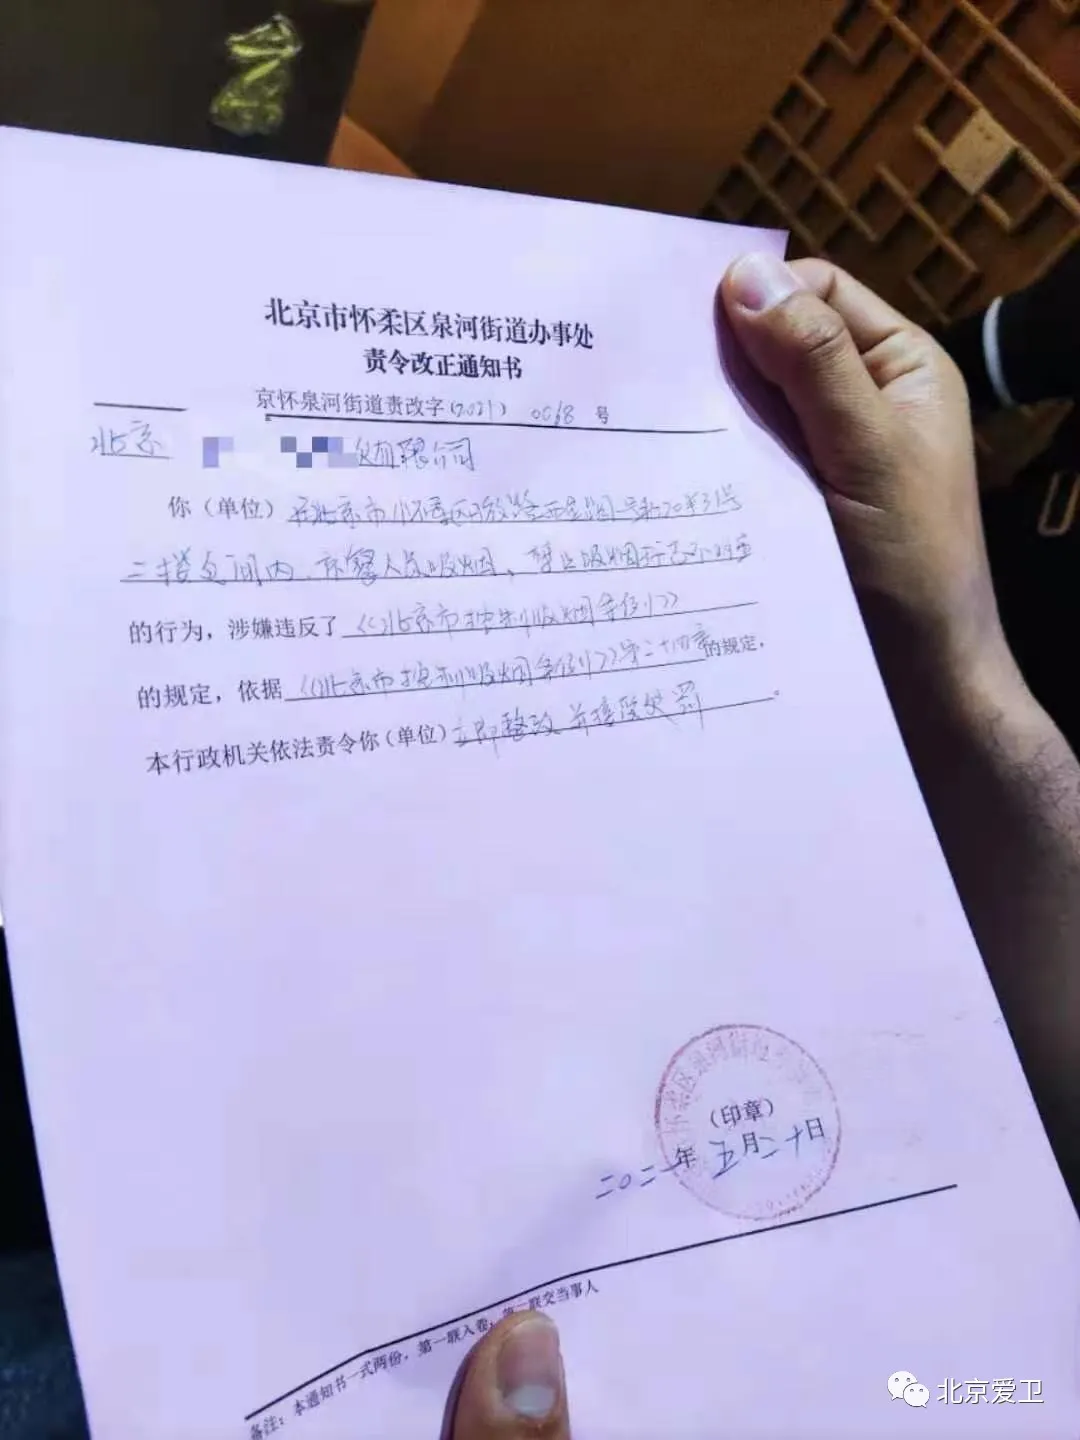 北京市怀柔区泉河街道办事处
责令改正通知书
京怀泉河街道责改字(2021) 0068 号
北京 有限公司
你（单位）在北京市怀柔区 31号
二楼包间内，就餐人员吸烟，禁止吸烟标志不明显
的行为，涉嫌违反了《北京市控制吸烟条例》
的规定，依据《北京市控制吸烟条例》第二十四条的规定，
本行政机关依法责令你（单位）立即整改并接受处罚。
怀柔区泉河街道
（印章）
二〇二一年五月二十日
备注：本通知书一式两份，第一联入卷，第二联交当事人
北京爱卫